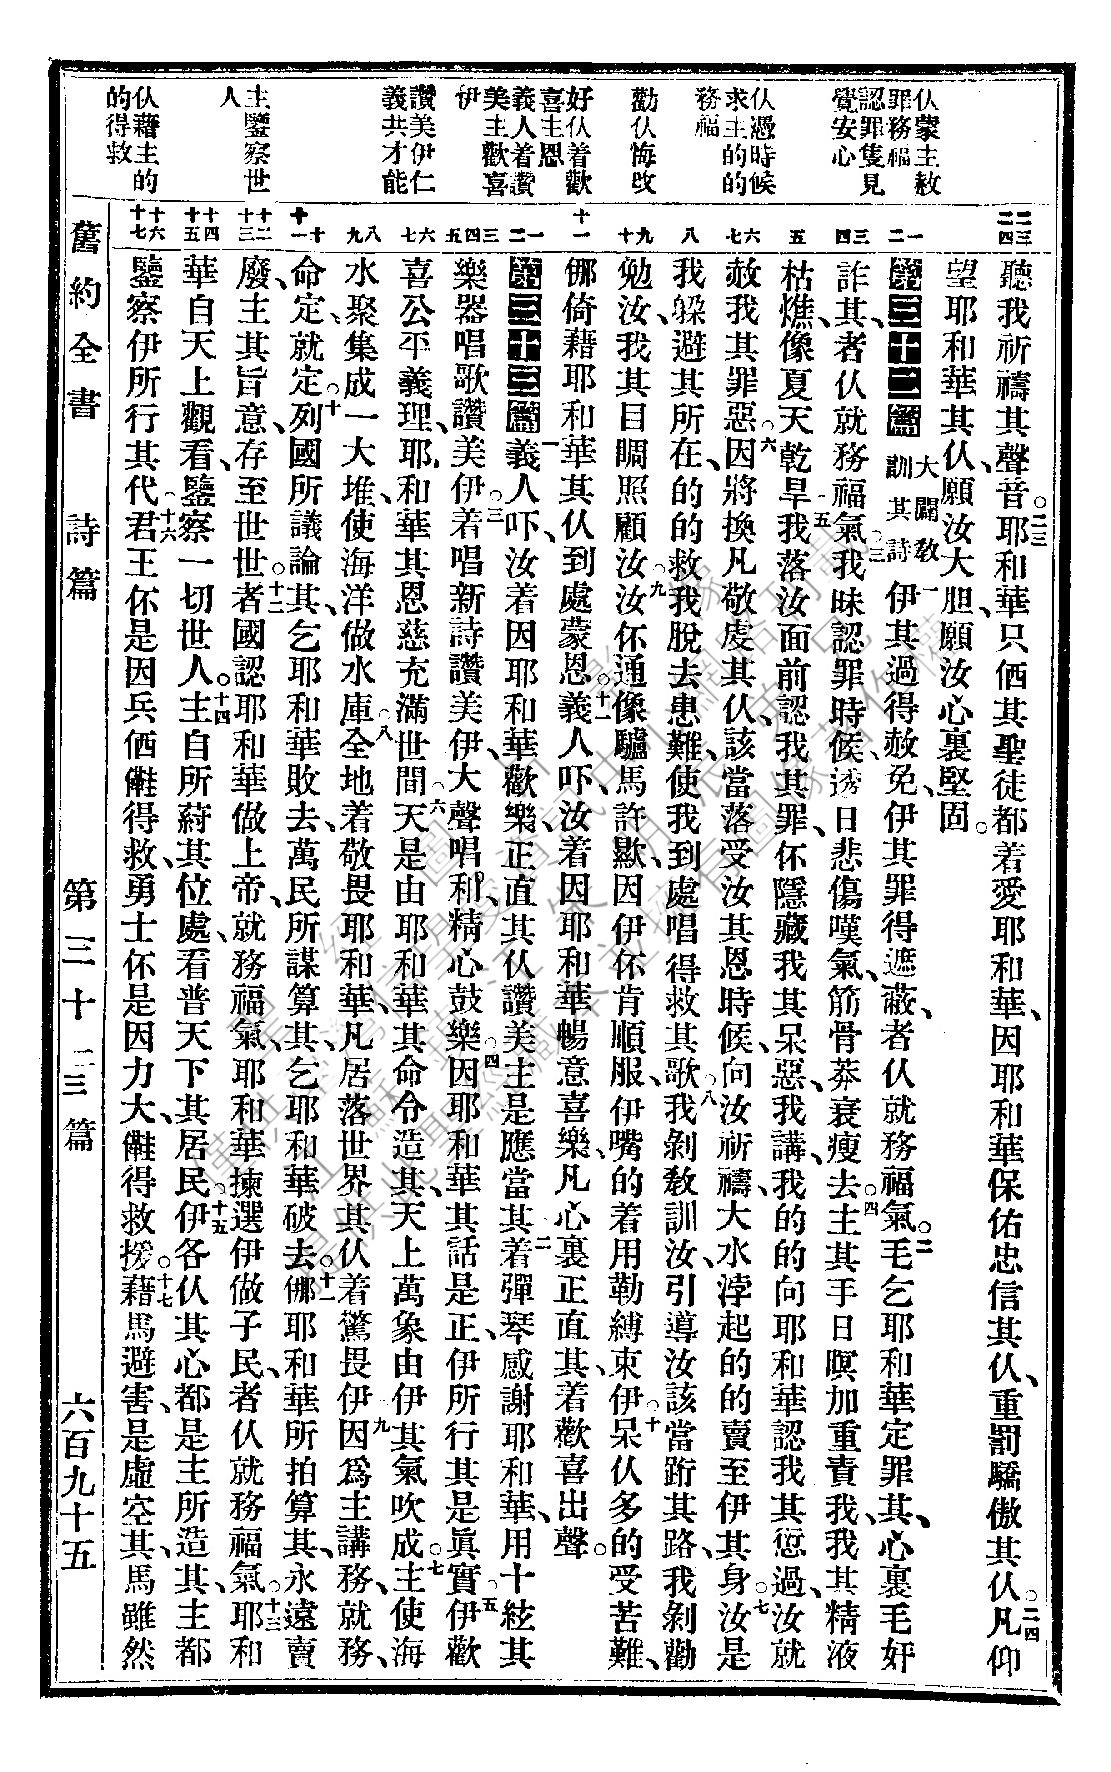 仫蒙主赦
罪務福
認罪隻見
覺安心
仫憑時候
求主的的
務福
勸仫悔改
好仫着歡
喜主恩
義人着讚
美主歡喜
伊
讚美伊仁
義共才能
主鑒察世
人
仫藉主的
的得救
二三
二四
一
二
三
四
五
六
七
八
九
十
十一
一
二
三
四
五
六
七
八
九
十
十一
十二
十三
十四
十五
十六
十七
聽我祈禱其聲音○二三耶和華只俩其聖徒都着愛耶和華、因耶和華保佑忠信其仫、重罰驕傲其仫○二四凡仰
望耶和華其仫、願汝大胆、願汝心裏堅固。
第三十二篇 大闢教訓其詩 一伊其過得赦免、伊其罪得遮蔽、者仫就務福氣。二毛乞耶和華定罪其、心裏毛奸
詐其、者仫就務福氣○三我昧認罪時候、透日悲傷嘆氣、筋骨莽衰瘦去○四主其手日暝加重責我、我其精液
枯燋、像夏天乾旱○五我落汝面前認我其罪、伓隱藏我其呆惡、我講、我的的向耶和華認我其愆過、汝就
赦我其罪惡○六因將換凡敬虔其仫、該當落受汝其恩時候、向汝祈禱、大水浡起的的賣至伊其身○七汝是
我躱避其所在、的的救我脫去患難、使我到處唱得救其歌○八我剝教訓汝、引導汝該當跱其路、我剝勸
勉汝、我其目睭照顧汝○九汝伓通像驢馬許款、因伊伓肯順服、伊嘴的着用勒縛束伊○十呆仫多的受苦難、
㑚倚藉耶和華其仫到處蒙恩○十一義人吓、汝着因耶和華暢意喜樂、凡心裏正直其、着歡喜出聲。
第三十三篇 一義人吓、汝着因耶和華歡樂、正直其仫讚美主是應當其○二着彈琴感謝耶和華、用十絃其
樂器唱歌讚美伊○三着唱新詩讚美伊、大聲唱和、精心鼓樂○四因耶和華其話是正、伊所行其是眞實○五伊歡
喜公平義理、耶和華其恩慈充滿世間○六天是由耶和華其命令造其、天上萬象由伊其氣吹成○七主使海
水聚集成一大堆、使海洋做水庫○八全地着敬畏耶和華、凡居落世界其仫着驚畏伊○九因爲主講務、就務、
命定、就定○十列國所議論其、乞耶和華敗去、萬民所謀算其、乞耶和華破去○十一㑚耶和華所拍算其、永遠賣
廢、主其旨意、存至世世○十二者國認耶和華做上帝、就務福氣、耶和華揀選伊做子民、者仫就務福氣○十三耶和
華自天上觀看、鑒察一切世人○十四主自所𦵷其位處、看普天下其居民○十五伊各仫其心都是主所造其、主都
鑒察伊所行其代○十六君王伓是因兵俩𣍐得救、勇士伓是因力大、𣍐得救援○十七藉馬避害、是虛空其、馬雖然
舊約全書　詩篇　第三十二三篇　六百九十五